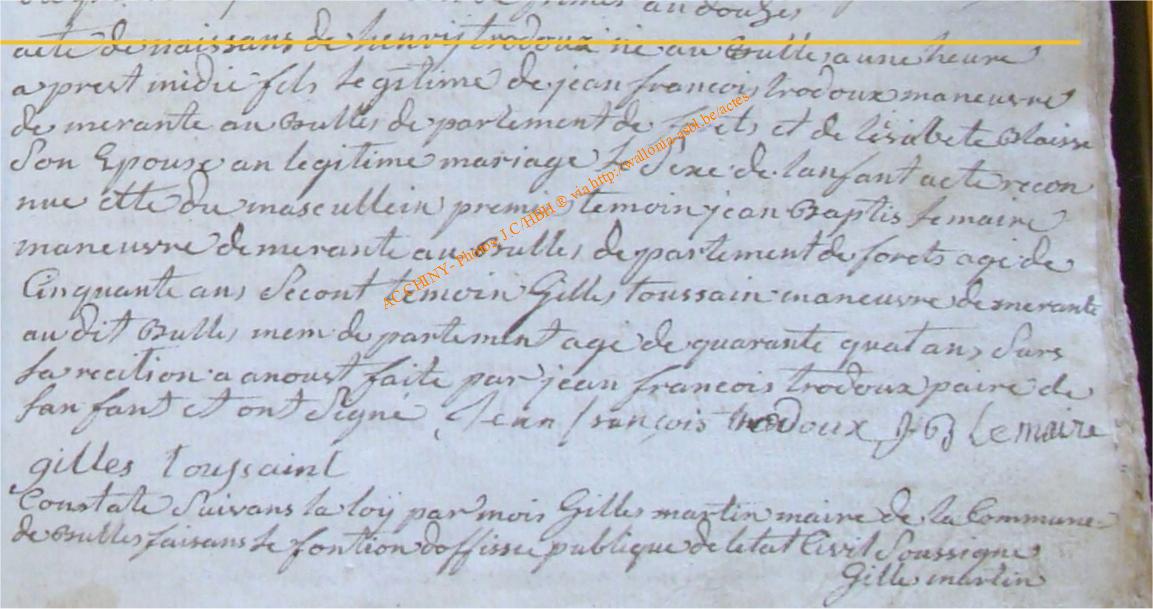 acte de naissans de henrij trodoux né au Bulles a une heure
a prest midie fils legitime de jean francois trodoux maneuvre
de merante au Bulles de partement de forets et de lisabete Blaisse
Son Epouse an legitime mariage Le Sexe de lanfant acte recon
nue ette du mascullein premie temoin jean Baptis Lemaire
maneuvre demerante au Bulles de partement de forets age de
Cinquante ans Secont temoin Gilles toussain maneuvre demerante
au dit Bulles mem de partement age de quarante quat ans Surs
la recition a anoust faite par jean francois trodoux paire de
lanfant et ont Signé Jean françois trodoux J b Lemaire
gilles toussaint
Constate Suivans la loij par mois Gilles martin maire de la Commune
de Bulles faisans le fontion doffissie publique de letat Civil Soussigne
Gilles martin
ACCHINY - Photos J.C /HBH ® via http://wallonia-asbl.be/actes